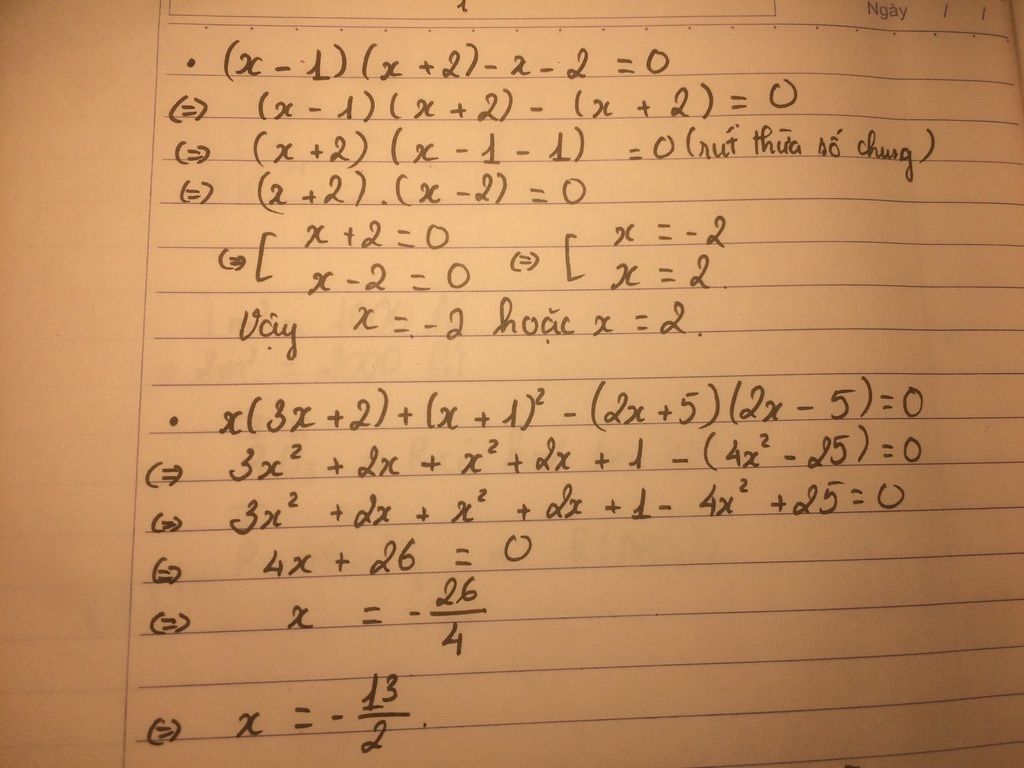 Ngày / /
• (x - 1) (x + 2) - x - 2 = 0
(=) (x - 1) (x + 2) - (x + 2) = 0
(=) (x + 2) (x - 1 - 1) = 0 (rút thừa số chung)
(=) (x + 2) . (x - 2) = 0
(=) [ x + 2 = 0 (=) [ x = -2
x - 2 = 0 x = 2.
Vậy x = -2 hoặc x = 2.
• x(3x + 2) + (x + 1)² - (2x + 5)(2x - 5) = 0
(=) 3x² + 2x + x² + 2x + 1 - (4x² - 25) = 0
(=) 3x² + 2x + x² + 2x + 1 - 4x² + 25 = 0
(=) 4x + 26 = 0
(=) x = - 26/4
(=) x = - 13/2.